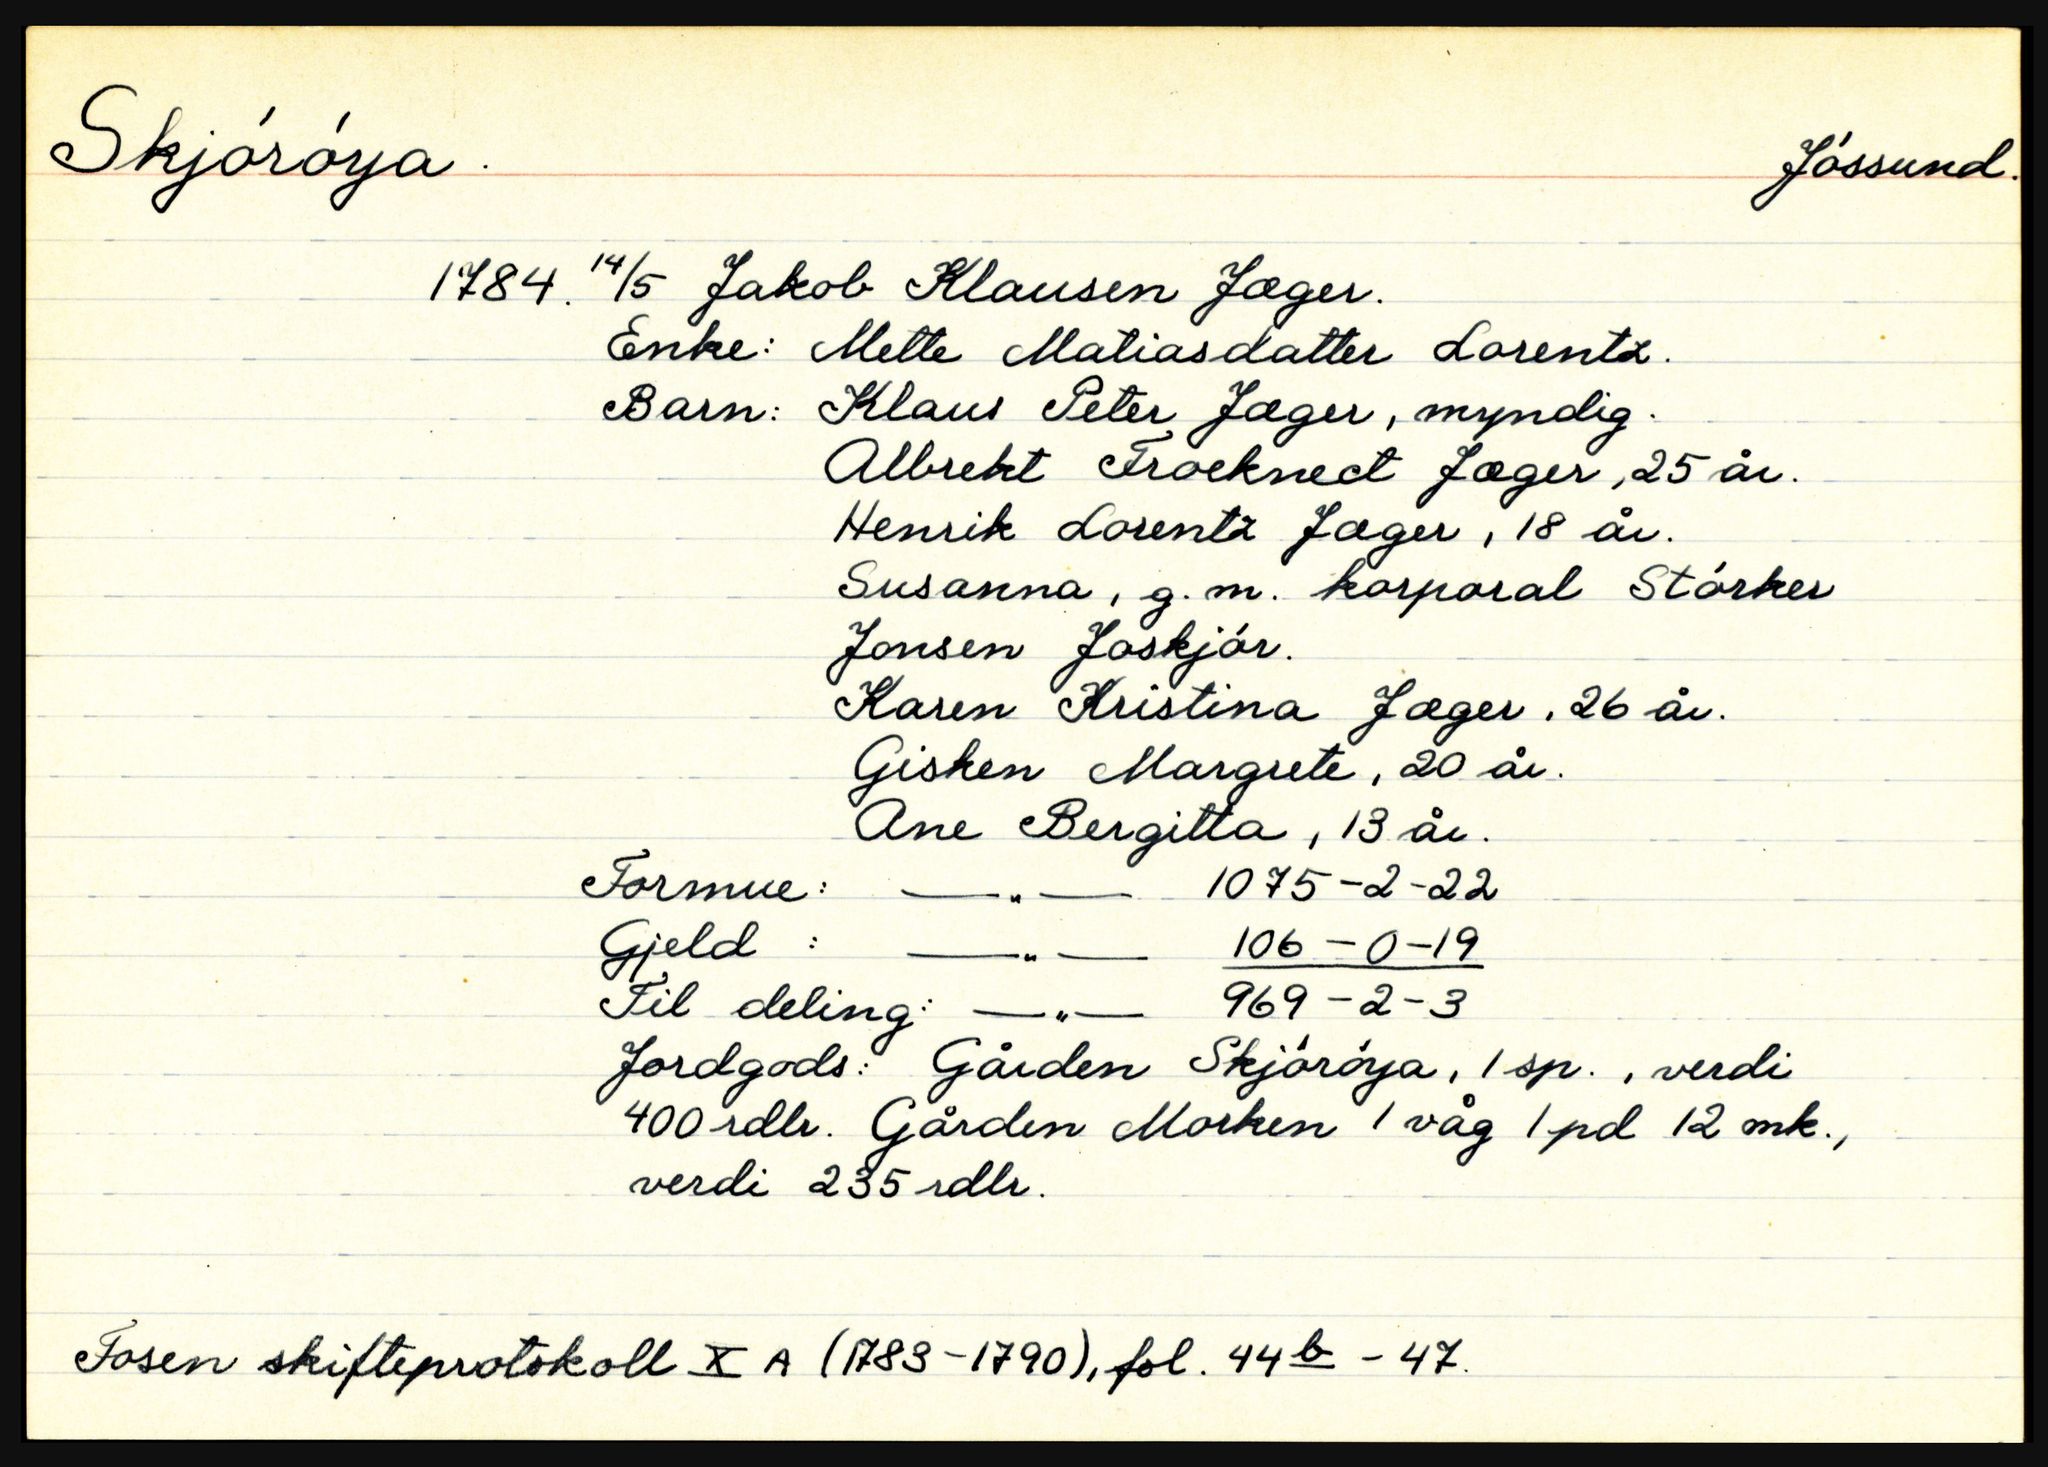 Skjóróya.
Jóssund.
1784. 14/5 Jakob Klausen Jæger.
Enke: Mette Matiasdatter Lorentz.
Barn: Klaus Peter Jæger, myndig.
Albrekt Frocknect Jæger, 25 år.
Henrik Lorentz Jæger, 18 år.
Susanna, g. m. korporal Stórker
Jonsen Joskjór.
Karen Kristina Jæger, 26 år.
Gisken Margrete, 20 år.
Ane Bergitta, 13 år.
Formue: —„— 1075-2-22
Gjeld : —„— 106-0-19
Til deling: —„— 969-2-3
Jordgods: Gården Skjóróya, 1 sp., verdi
400 rdlr. Gården Morken 1 våg 1 pd 12 mk.,
verdi 235 rdlr.
Fosen skifteprotokoll X A (1783-1790), fol. 44b - 47.